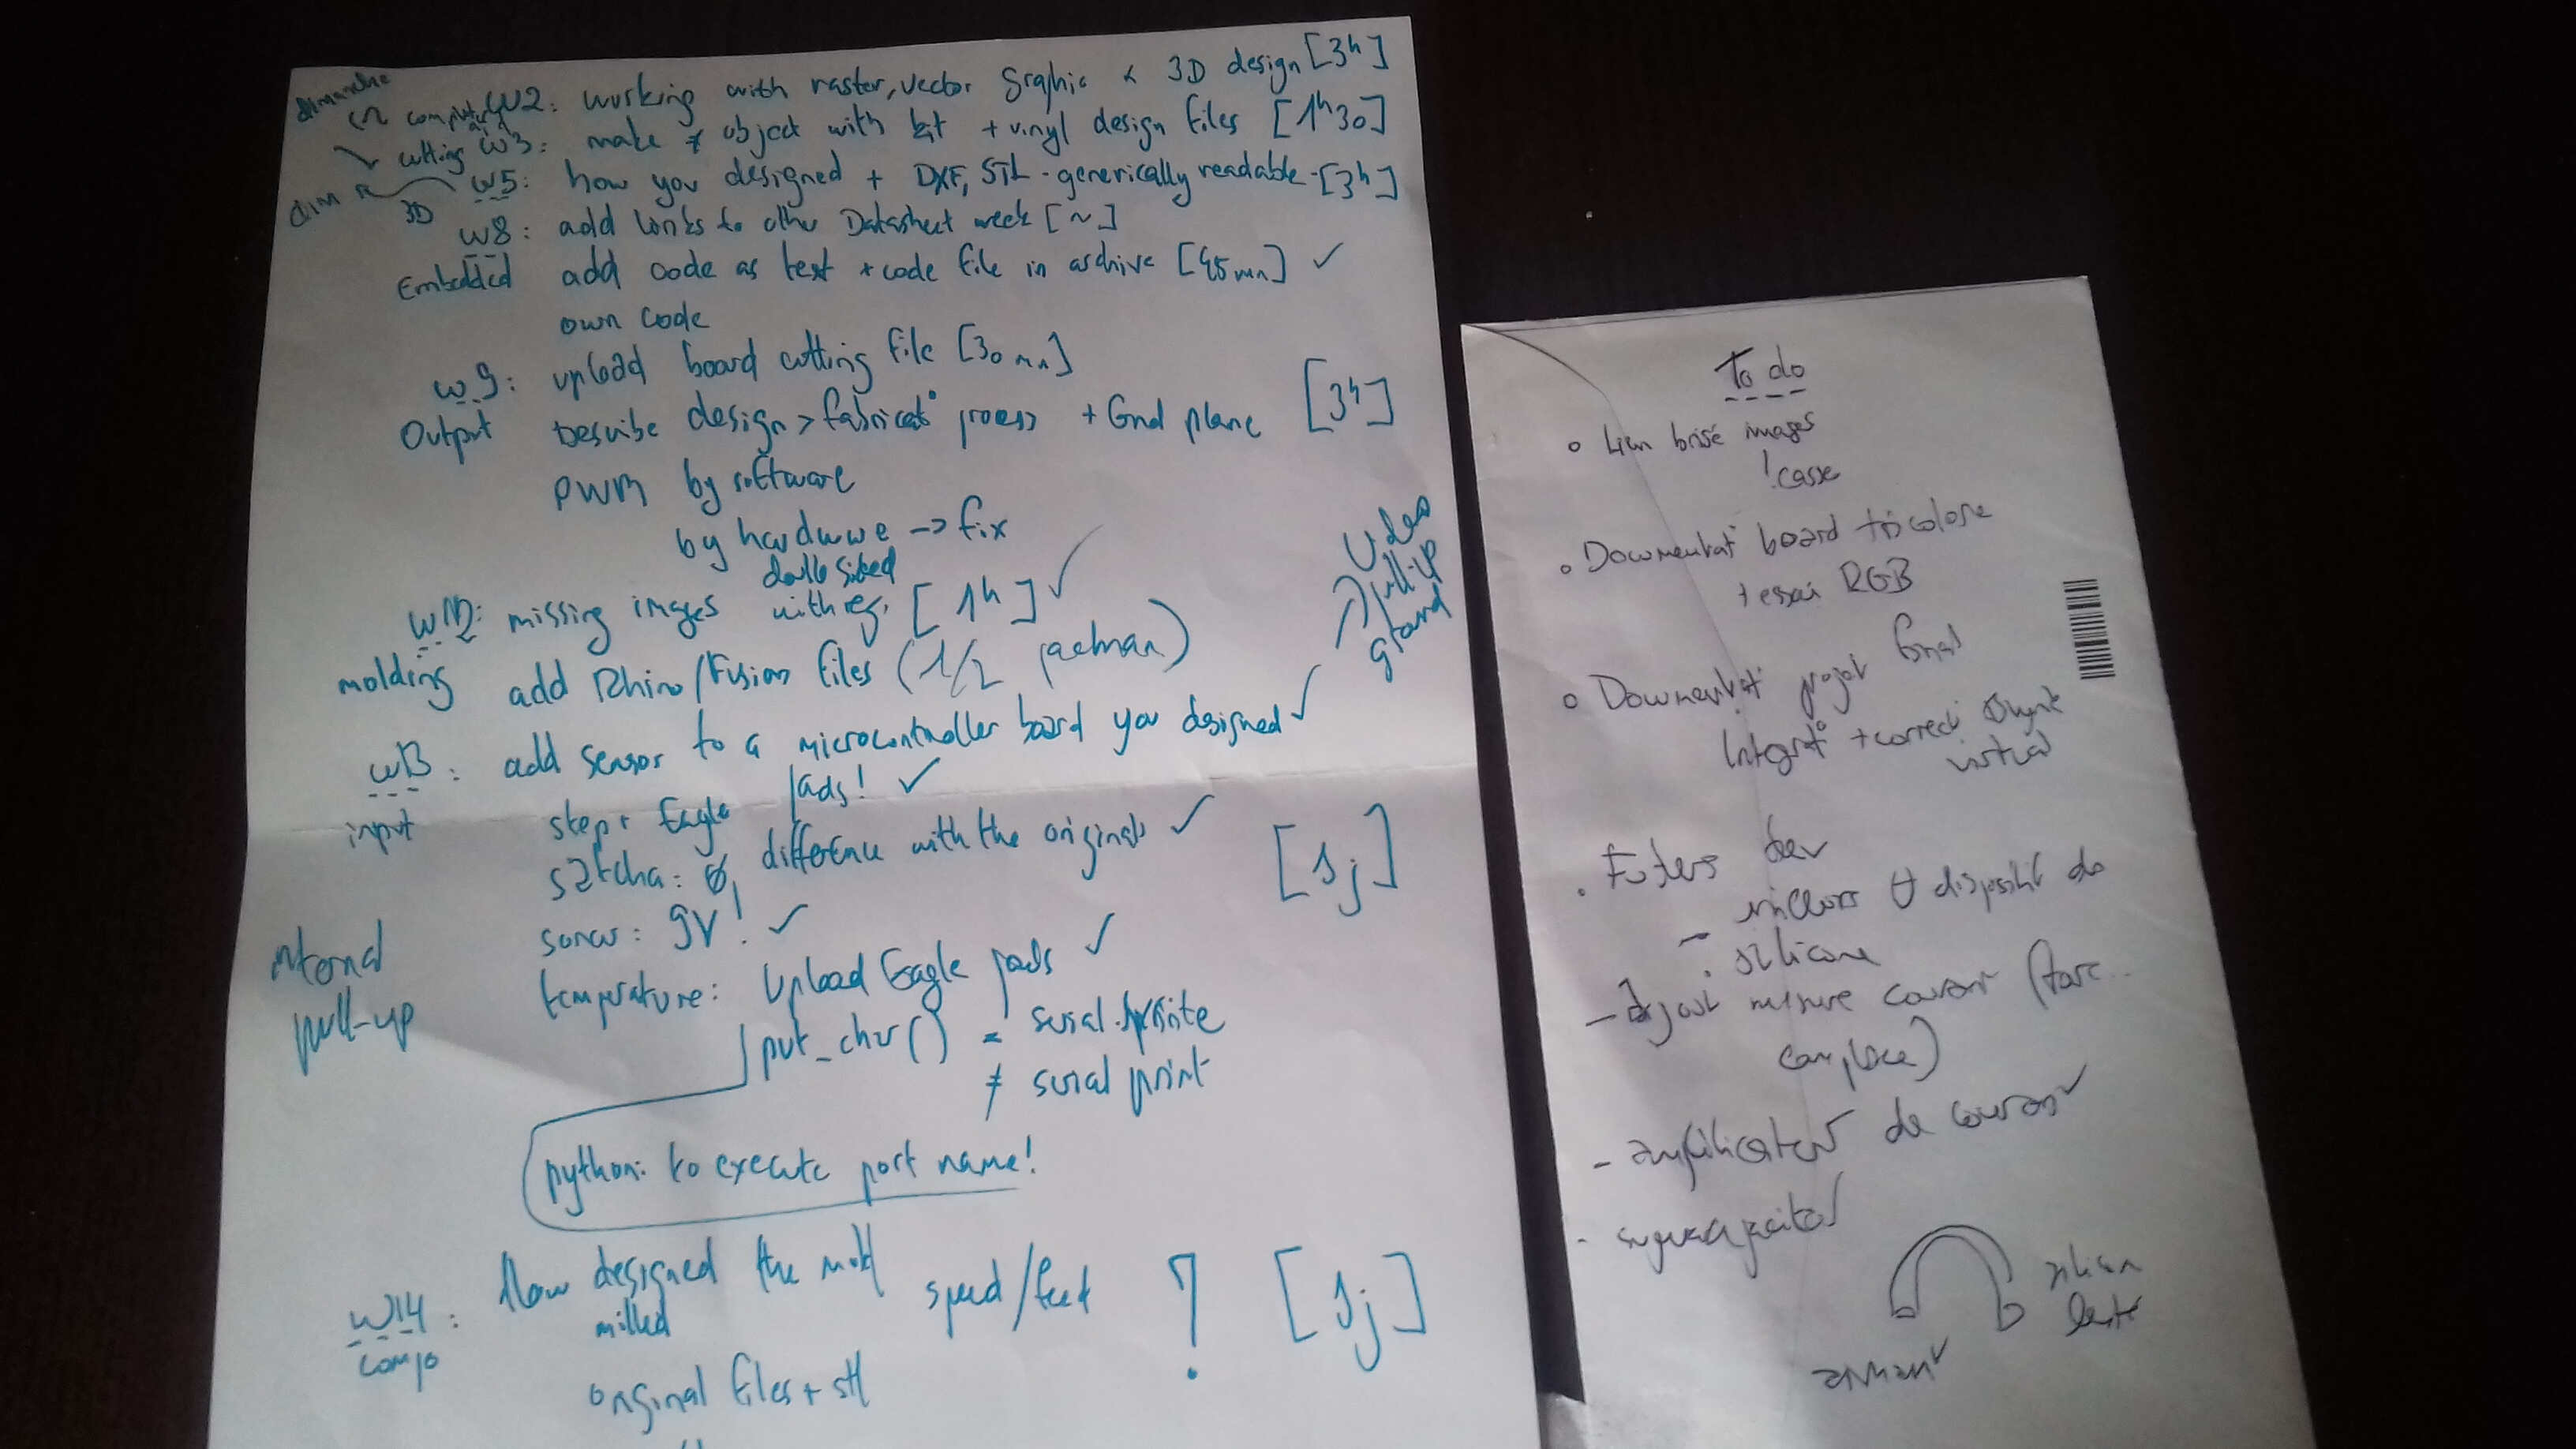 dimanche
computer aid W2: working with raster, vector graphic & 3D design [3h]
cutting W3: make ≠ object with kit + vinyl design files [1h30]
dim
3D W5: how you designed + DXF, STL - generically readable - [3h]
W8: add links to other Datasheet week [~]
Embedded add code as text + code file in archive [45mn] ✓
own code
W9: upload board cutting file [30mn]
Output Describe design > fabricat° process + Gnd plane [3h]
PWM by software
by hardware -> fix
double sided
W12: missing images with reg. [1h] ✓
molding add Rhino/Fusion files (1/2 pacman)
W13: add sensor to a microcontroller board you designed ✓
pull-up
input step + Eagle pads! ✓
satcha: Ø, difference with the original ✓
[1j]
sonar: 9V! ✓
internal
pull-up
temperature: Upload Eagle pads ✓
put_char() = serial.write
≠ serial print
python: to execute port name!
W14: How designed the mold speed/feed ? [1j]
milled
compo
original files + stl
To do
o Lien brisé images
! casse
o Documentat° board tricolore
+ essai RGB
o Documentat° projet final
Integrat° + correct°
virtual
. Futurs dev
dispositif de
silicone
- Ajout mesure courant (
- amplificateur de courant
- supercapacitor
aimant